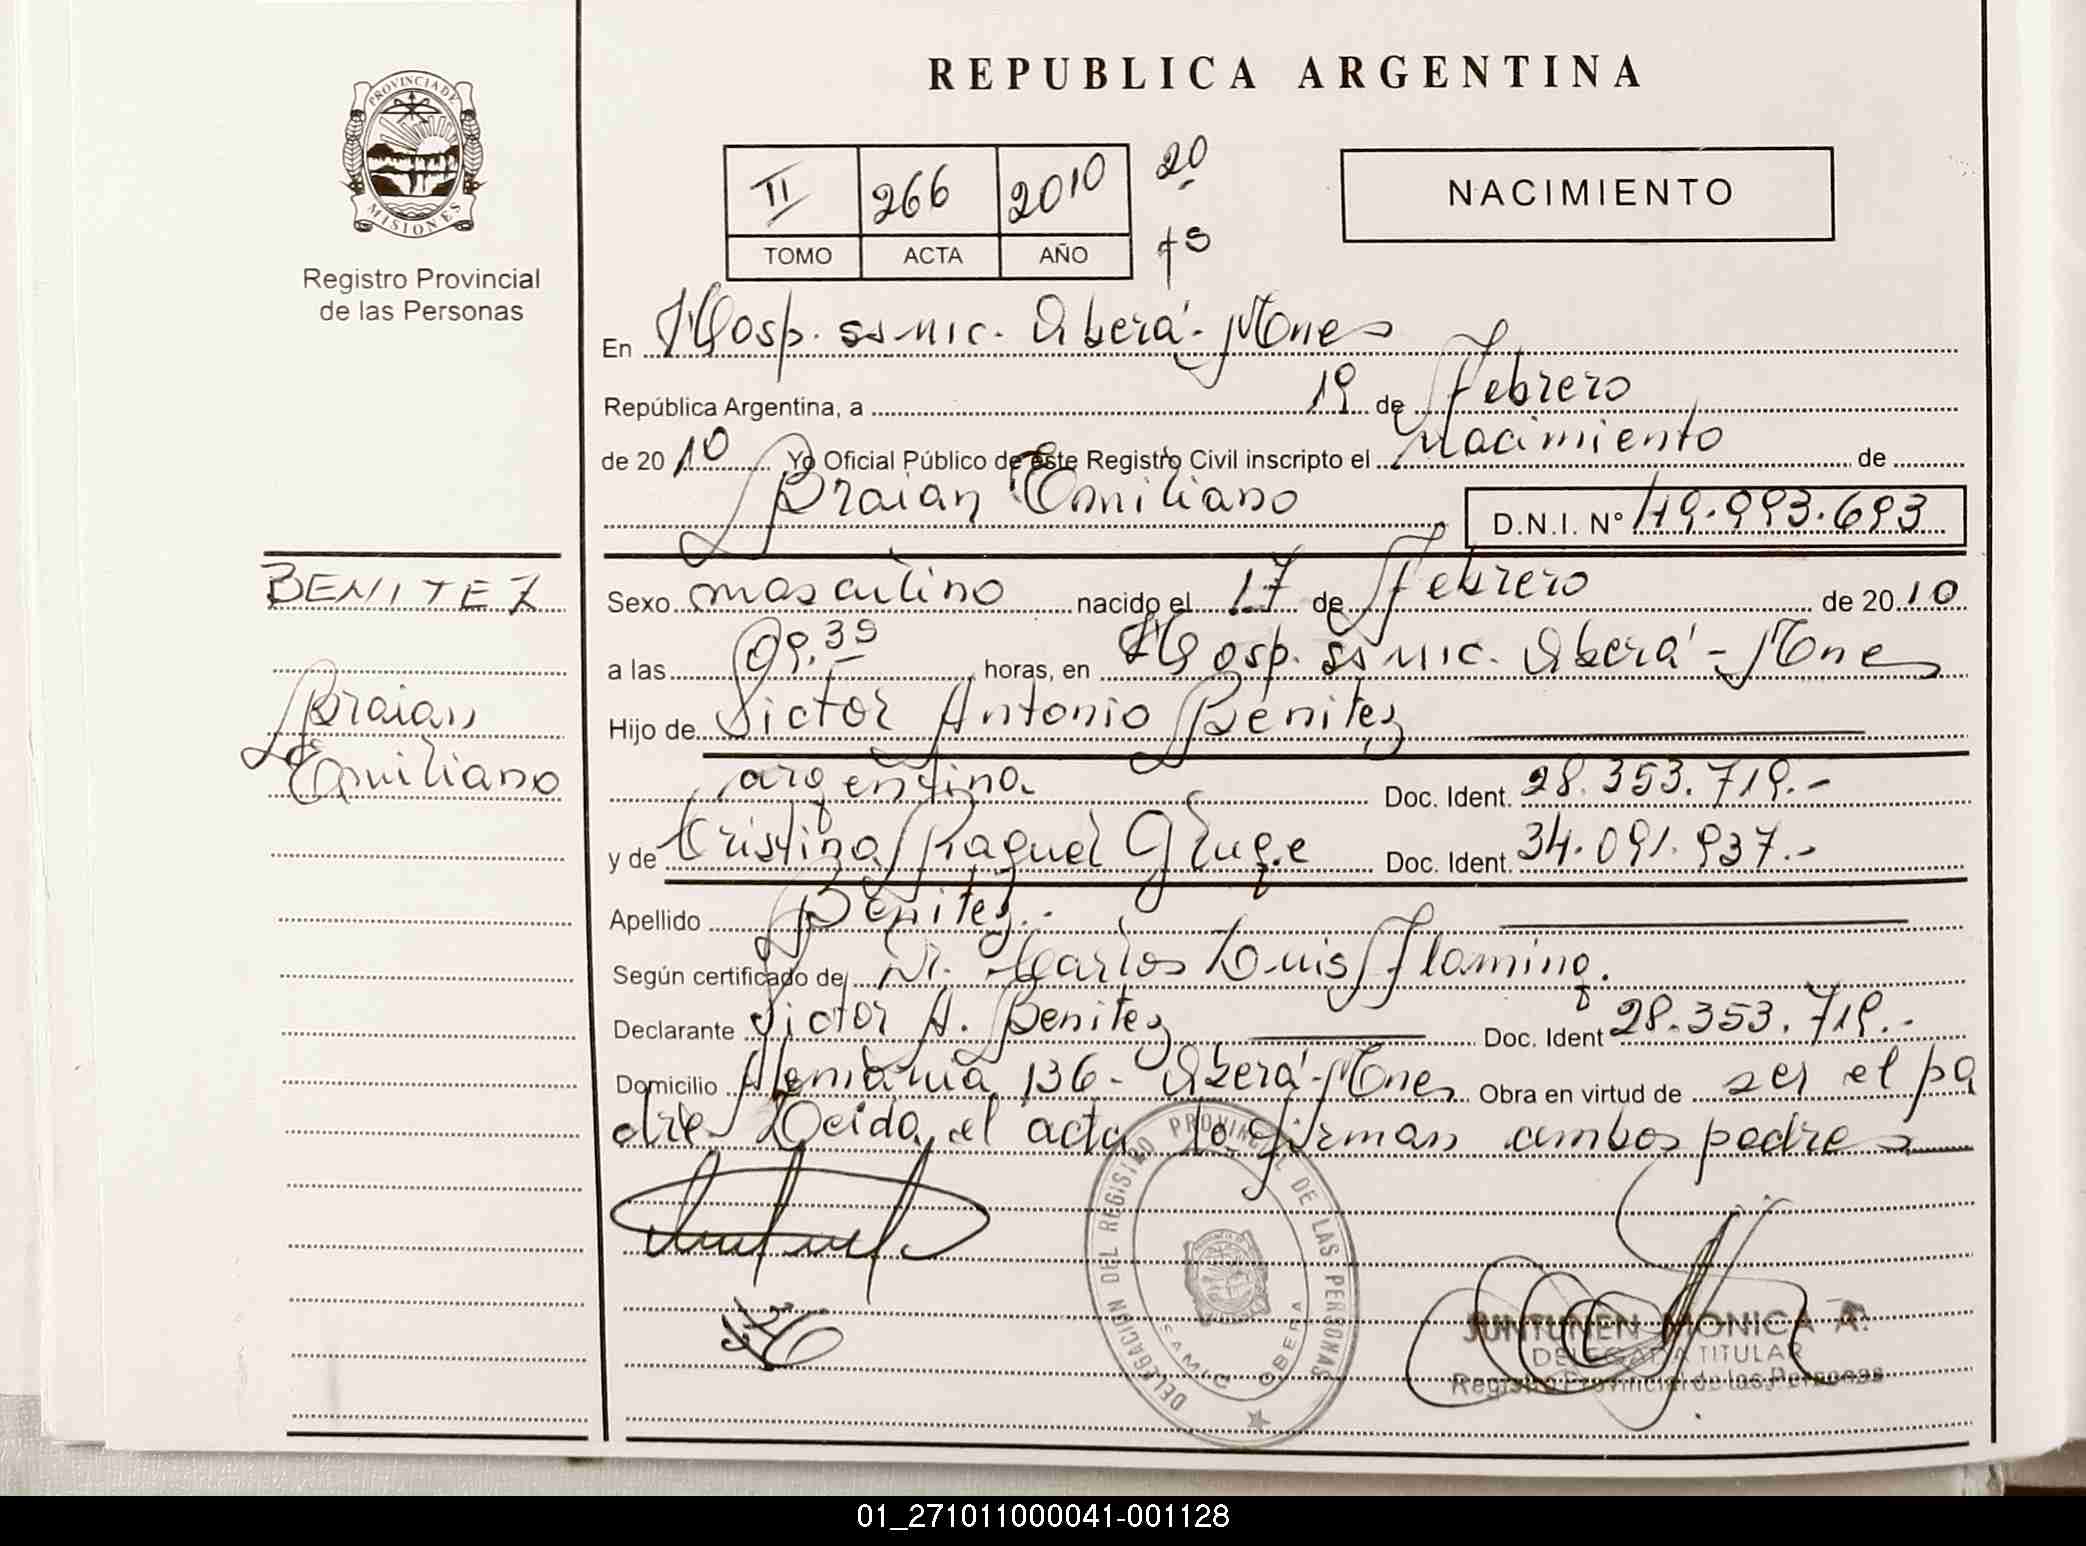 PROVINCIA DE
MISIONES
Registro Provincial
de las Personas
BENITEZ
Braian
Emiliano
REPUBLICA ARGENTINA
II 266 2010 20
TOMO ACTA AÑO
NACIMIENTO
En Hosp. Oberá - Mnes
República Argentina, a 19 de Febrero
de 2010 Yo Oficial Público de este Registro Civil inscripto el Nacimiento de
Braian Emiliano D.N.I. Nº 49.993.693
Sexo masculino nacido el 17 de Febrero de 2010
a las 09.35 horas, en Hosp. Oberá - Mnes
Hijo de Victor Antonio Benitez
argentina Doc. Ident. 28.353.719.-
y de Cristina Raquel Doc. Ident. 34.091.937.-
Apellido Benitez.-
Según certificado de Dr. Carlos Luis Flaming.
Declarante Victor A. Benitez Doc. Ident 28.353.719.-
Domicilio Alemania 136 - Oberá - Mnes Obra en virtud de ser el pa
dre Leida el acta la firman ambos padres
DELEGACION DEL REGISTRO PROVINCIAL DE LAS PERSONAS
SAMIC OBERA
JUNTUNEN MONICA A.
DELEGADA TITULAR
Registro Provincial de las Personas
01_271011000041-001128